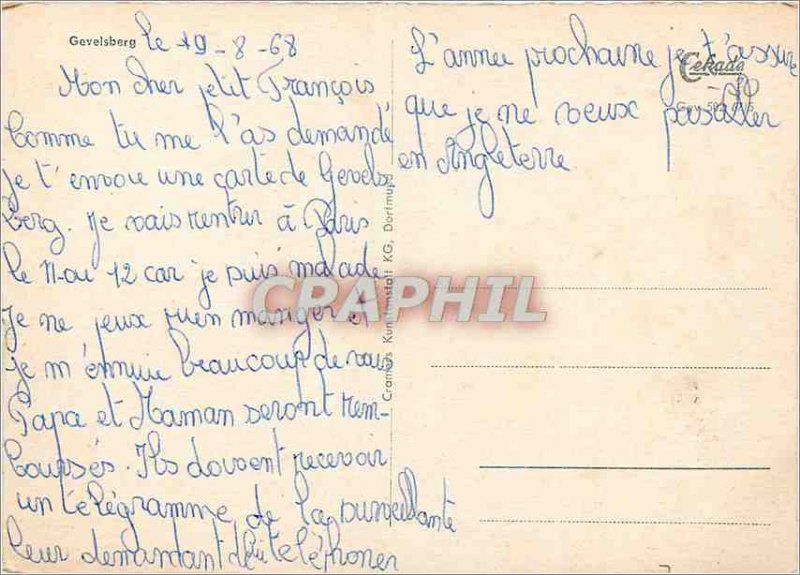 Gevelsberg le 19-8-68
Mon cher petit François
Comme tu me l'as demandé
je t'envoie une carte de Gevels
berg. Je vais rentrer à Paris
le 11 ou 12 car je suis malade
Je ne peux rien manger et
je m'ennuie beaucoup de vous
Papa et Maman seront rem-
boursés. Ils doivent recevoir
un télégramme de la surveillante
leur demandant de téléphoner
L'année prochaine je t'assure
que je ne veux pas aller
en Angleterre
Cekade
Cramers Kunstanstalt KG, Dortmund
CRAPHIL